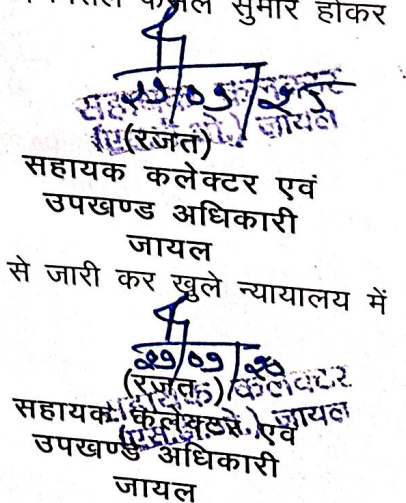 फैसल सुमार होकर
(रजत)
सहायक कलेक्टर एवं
उपखण्ड अधिकारी
जायल
से जारी कर खुले न्यायालय में
(रजत)
सहायक कलेक्टर एवं
उपखण्ड अधिकारी
जायल